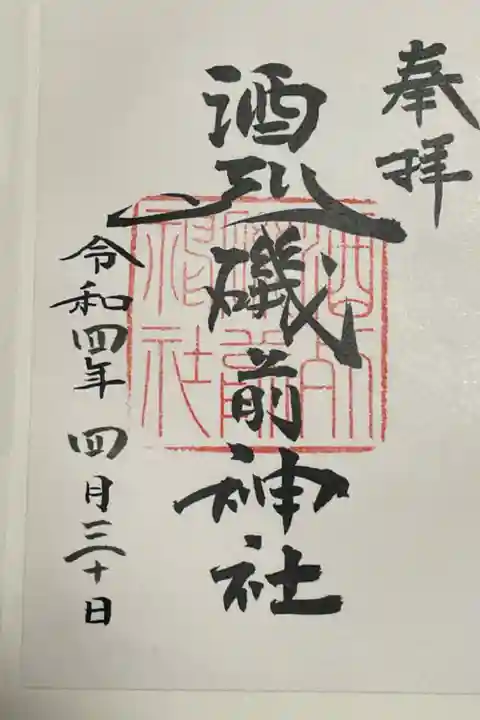 奉拝
酒列磯前神社
令和四年 四月三十日
酒列
磯前
神社